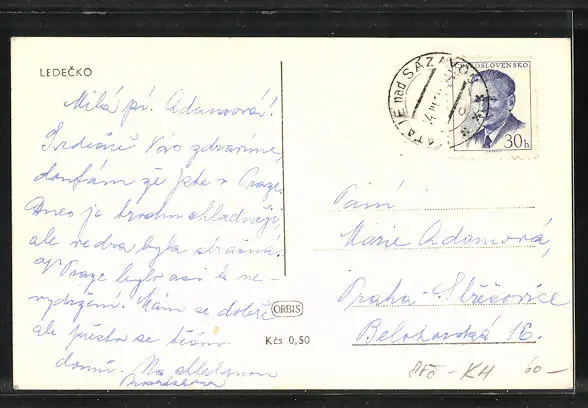 LEDEČKO
Milá pí. Adamová!
Srdečně Vás zdravíme,
doufám že jste v Praze.
Dnes je trochu chladněji,
ale vedra byla strašná.
V Praze bylo asi k ne-
vydržení. Mám se dobře
ale přesto se těším
domů. Na shledanou
ORBIS
Kčs 0,50
SLOVENSKO
30h
nad SÁZAVOU
Paní
Marie Adamová,
Praha-Střešovice
Bělohorská 16.
KH
60-